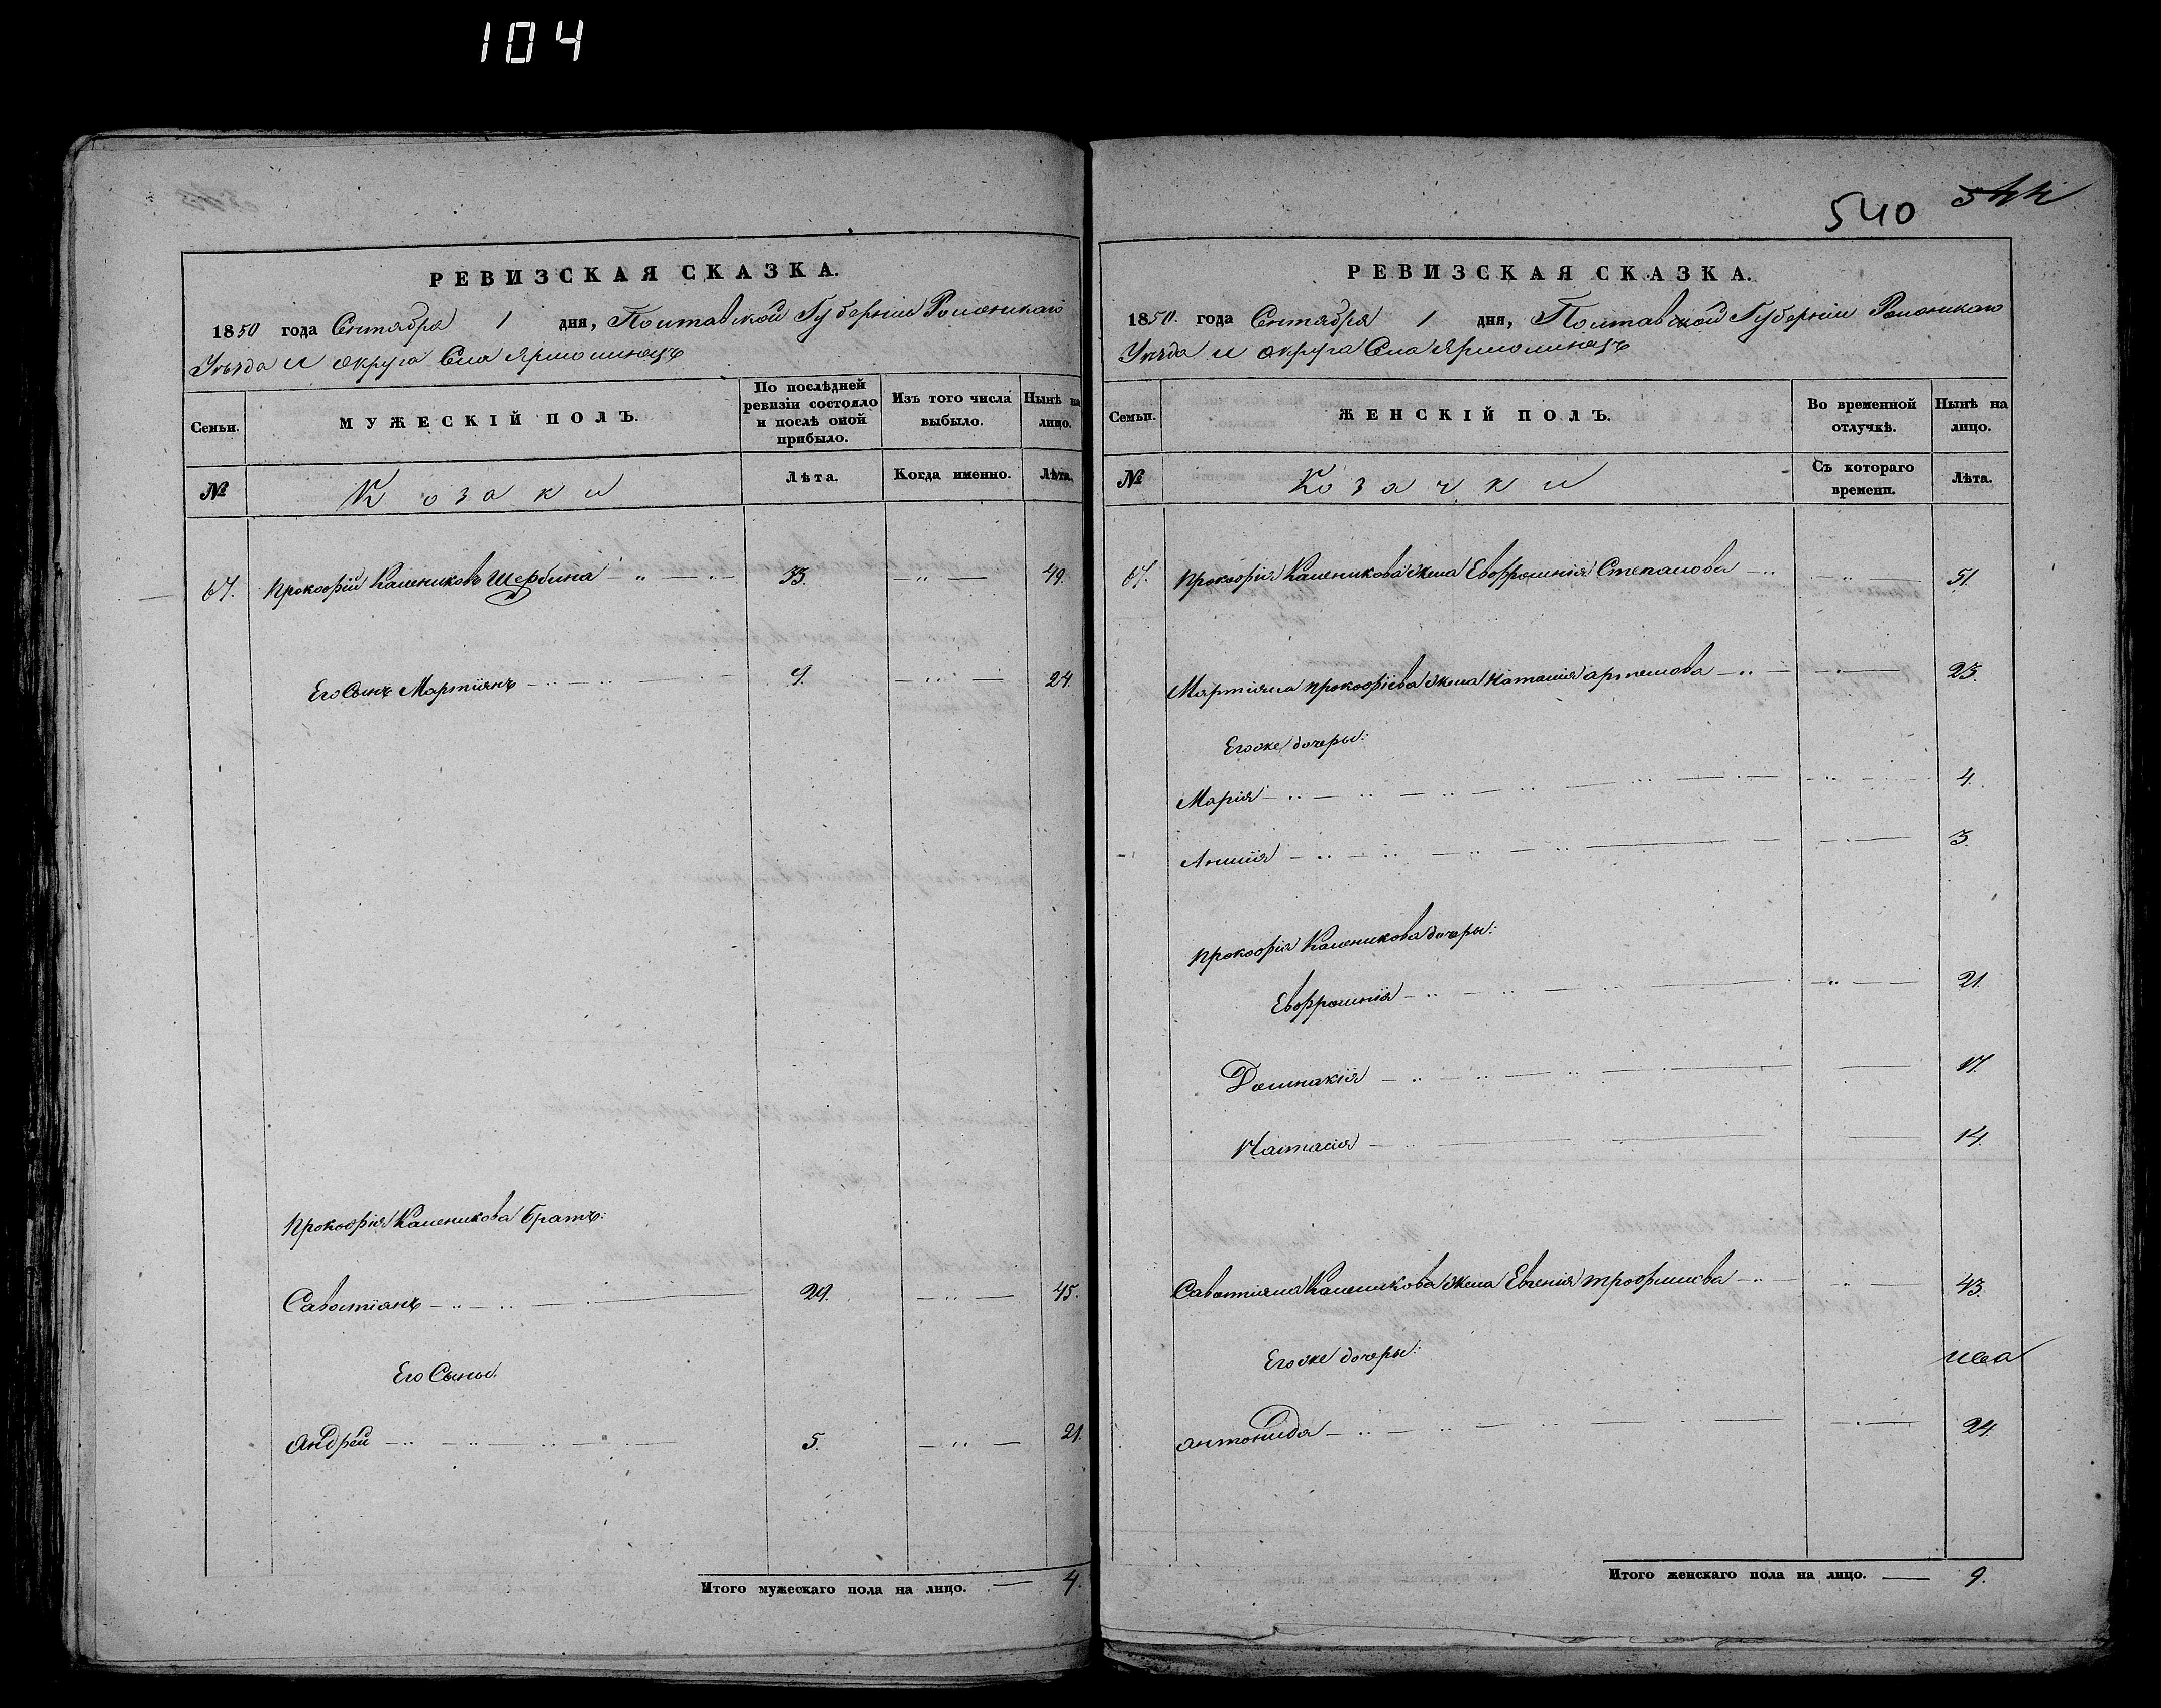 104
РЕВИЗСКАЯ СКАЗКА.
1850 года Сентября 1 дня, Полтавской Губерніи Роменскаго
Уѣзда и округа Села Ярмолинецъ
Семьи.
МУЖЕСКІЙ ПОЛЪ.
По послѣдней ревизіи состояло и послѣ оной прибыло.
Изъ того числа выбыло.
Нынѣ на лицо.
№
Козаки
Лѣта.
Когда именно.
Лѣта.
67. Прокофій Калениковъ Щербина 33. 49.
Его Сынъ Мартіянъ 9. 24.
Прокофія Каленикова братъ:
Савастіянъ 29. 45.
Его Сыны
Андрей 5. 21.
Итого мужескаго пола на лицо. 4.
540 544
РЕВИЗСКАЯ СКАЗКА.
1850. года Сентября 1 дня, Полтавской Губерніи Роменскаго
Уѣзда и округа Села Ярмолинецъ
Семьи.
ЖЕНСКІЙ ПОЛЪ.
Во временной отлучкѣ.
Нынѣ на лицо.
№
Козачки
Съ котораго времени.
Лѣта.
67. Прокофія Каленикова жена Евфросинія Степанова 51.
Мартіяна Прокофіева жена Наталія Артемова 23.
Его же дочеры:
Марія 4.
3.
Прокофія Каленикова дочеры:
Евфросинія 21.
Домнакія 17.
Настасія 14.
Савастіяна Каленикова жена Евгенія Трофимова 43.
Его же дочеры:
Антонида 24.
Итого женскаго пола на лицо. 9.